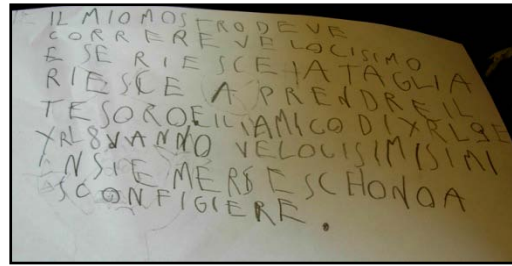 IL MIO MOSTRO DEVE
CORRERE VELOCISIMO
E SE RIESCE IA TAGLIA
RIESCE A PRENDRE IL
TESORO E IL IAMICO DI XRL8E
XRL8 VANNO VELOCISIMISIMI
INSIEME RESESCHONOA
SCONFIGIERE.